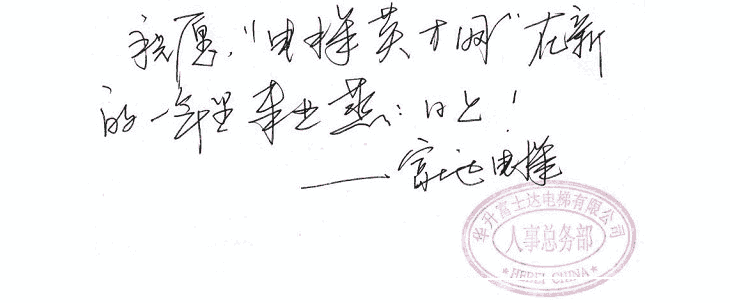 祝愿,"电梯英才网"在新
的一年里事业蒸:日上!
——富士达电梯
华升富士达电梯有限公司
人事总务部
HEBEI CHINA